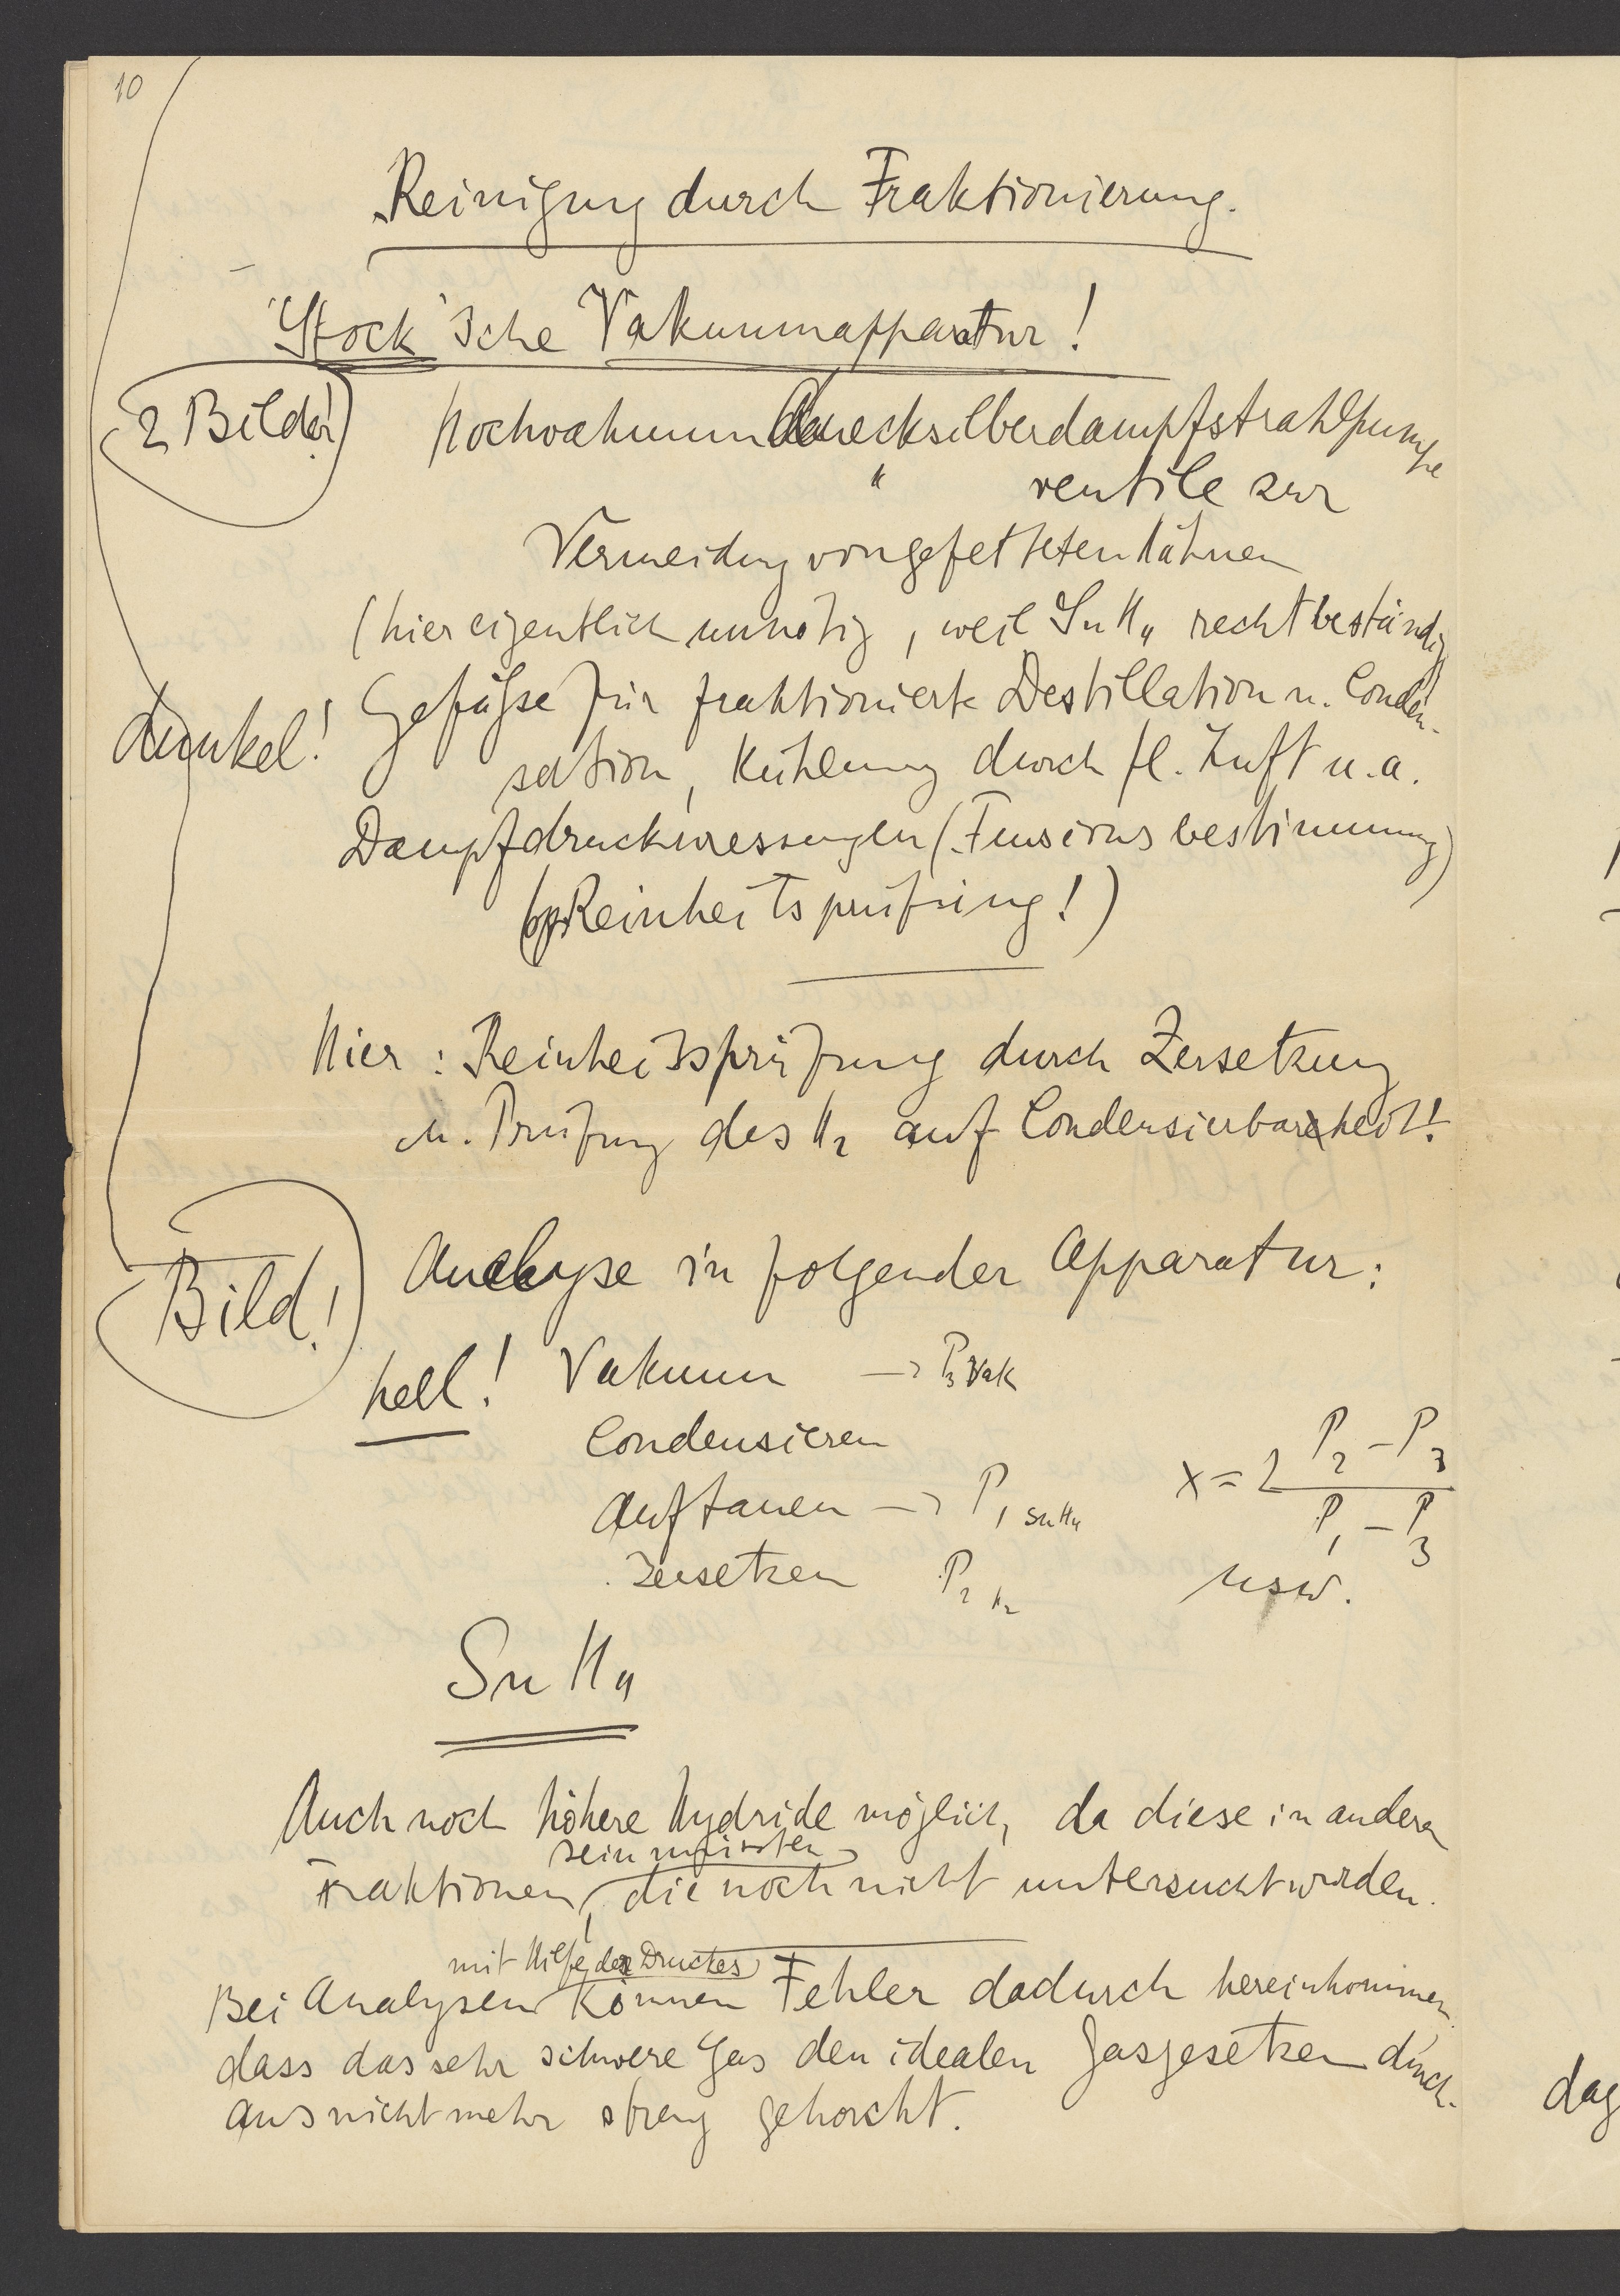 10
Reinigung durch Fraktionierung.
Stock'sche Vakuumapparatur!
2 Bilder! Hochvakuum Quecksilberdampfstrahlpumpe
" ventile zur
Vermeidung von gefetteten Hähnen
(hier eigentlich unnötig, weil SnH4 recht beständig
dunkel! Gefäße für fraktionierte Destillation u. Conden-
sation, Kühlung durch fl. Luft u.a.
Dampfdruckmessungen (Tensionsbestimmung)
Reinheitsprüfung!)
Hier: Reinheitsprüfung durch Zersetzung
u. Prüfung des H2 auf Condensierbarkeit!
Bild! Analyse in folgender Apparatur:
hell! Vakuum → P3 Vak
Condensieren
Auftauen → P1 SnH4
Zersetzen P2 H2
x = 2 (P2 - P3) / (P1 - P3)
usw.
SnH4
Auch noch höhere Hydride möglich, da diese in anderen
sein müssten
Fraktionen, die noch nicht untersucht wurden.
mit Hilfe des Druckes
Bei Analysen können Fehler dadurch hereinkommen,
dass das sehr schwere Gas den idealen Gasgesetzen durch-
aus nicht mehr streng gehorcht.
dag